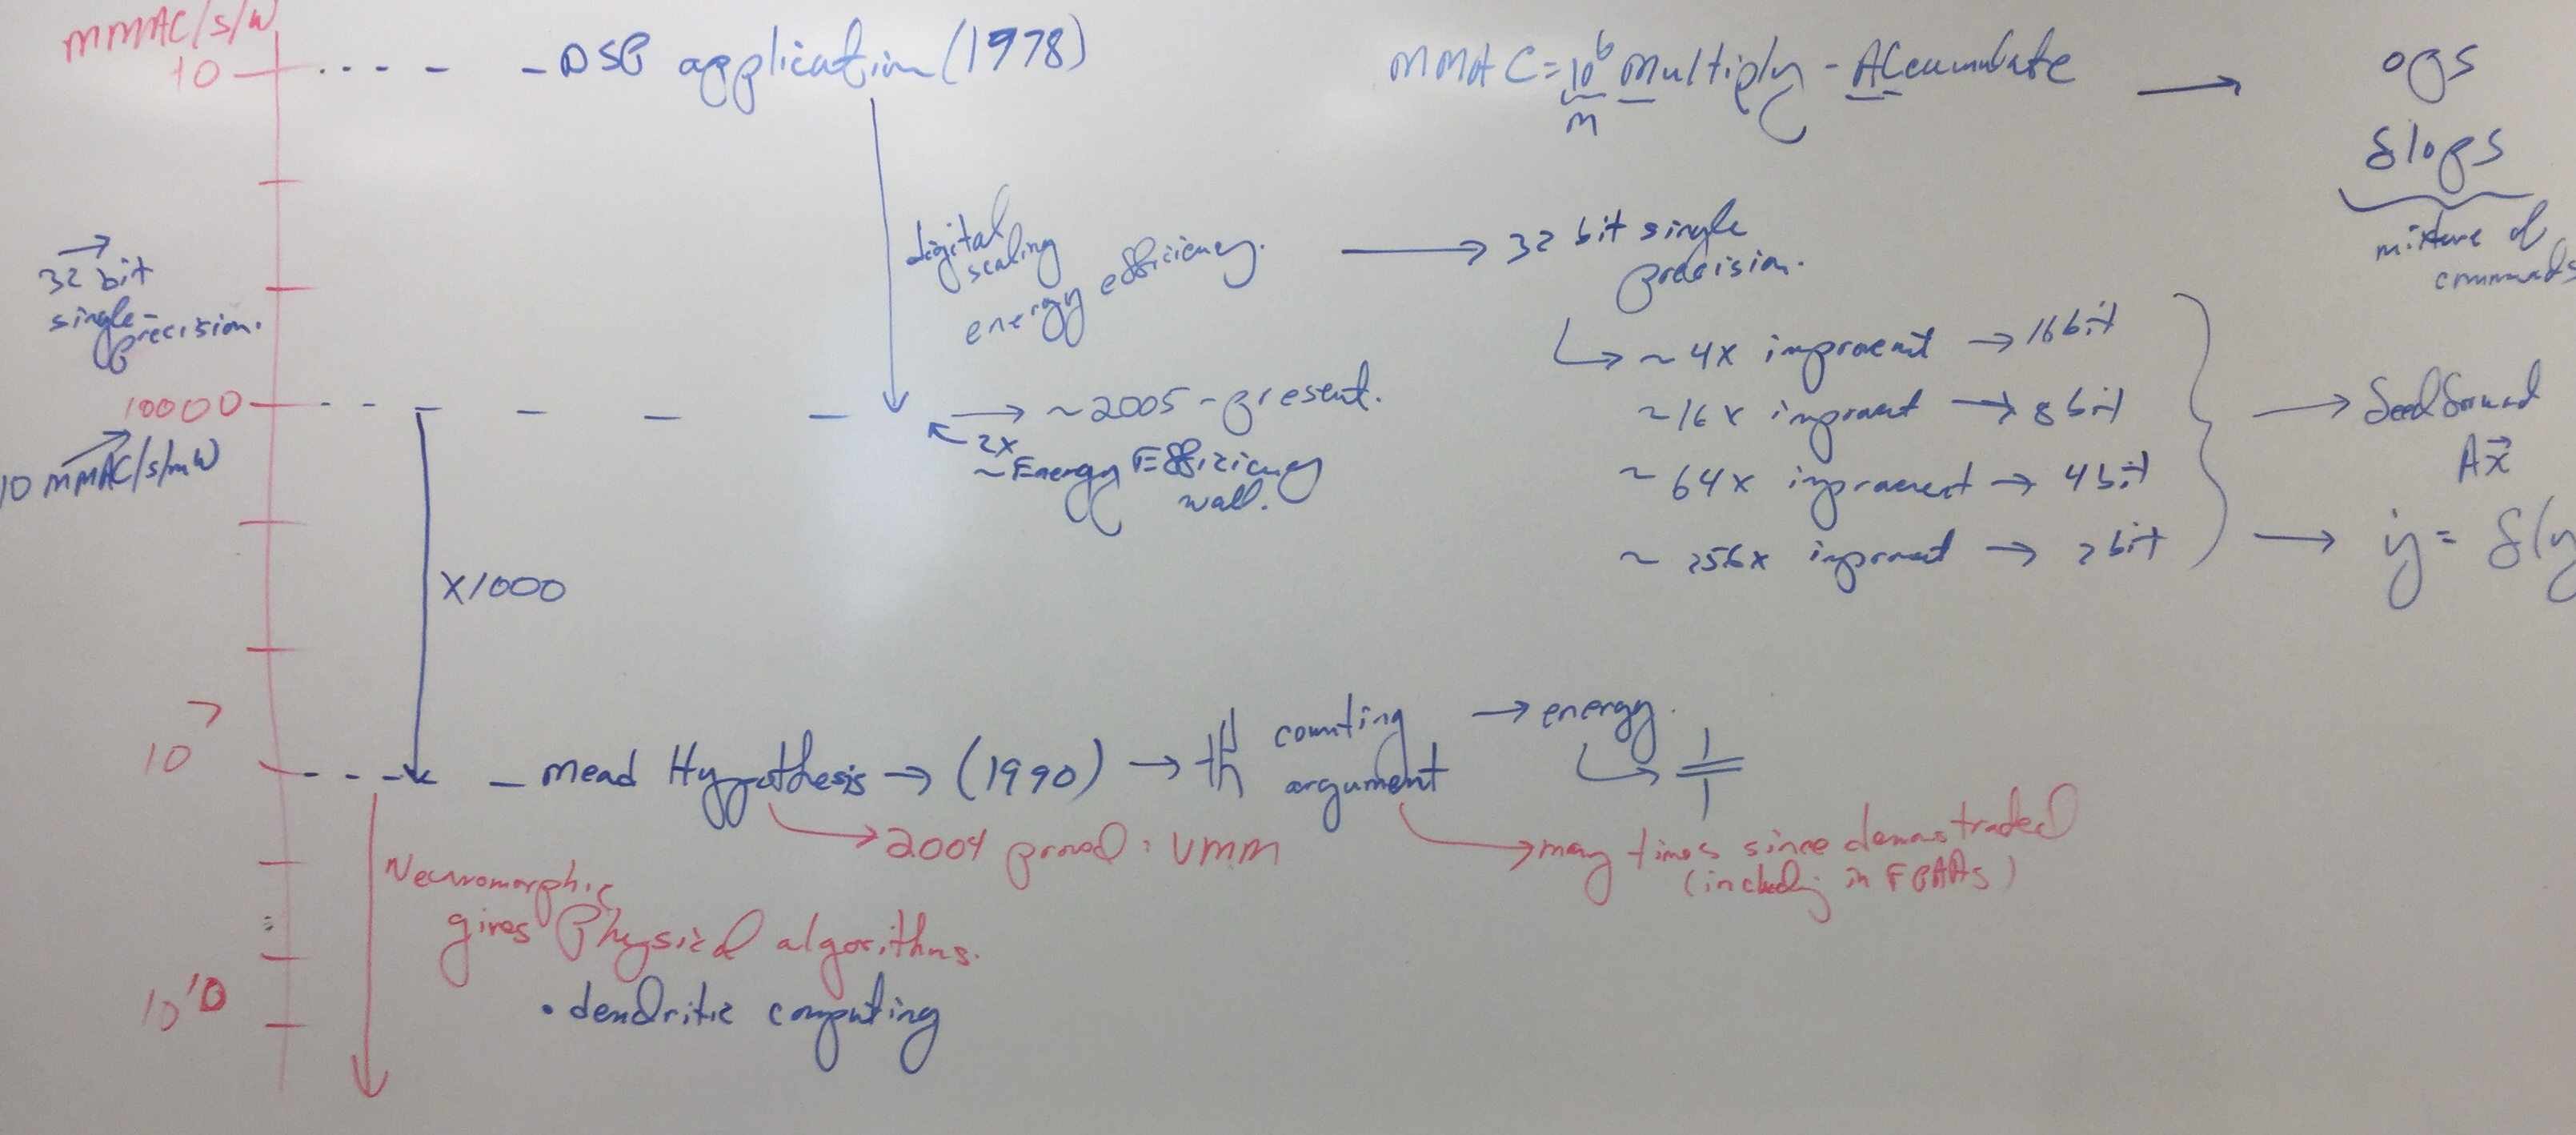 MMAC/s/W
10 - DSP application (1978)
MMAC = 10⁶ Multiply - ACcumulate → ops
M
flops
mixture of
commands
→
32 bit
single-
precision.
digital
scaling
energy efficiency. → 32 bit single
precision.
↳ ~ 4x improvemt → 16 bit
~ 16x improvmt → 8 bit
~ 64x improvement → 4 bit
~ 256x improvmt → 2 bit
→ feedforward
Ax⃗
→ ẏ = f(y
10000
→ ~2005 - present.
2x
~Energy Efficiency
wall.
10 MMAC/s/mW
x1000
10⁷ - Mead Hypothesis → (1990) → counting
argument
→ energy.
→ 2004 proved : VMM
→ many times since demonstrated
(including in FPAAs)
Neuromorphic
gives Physical algorithms.
• dendritic computing
10¹⁰